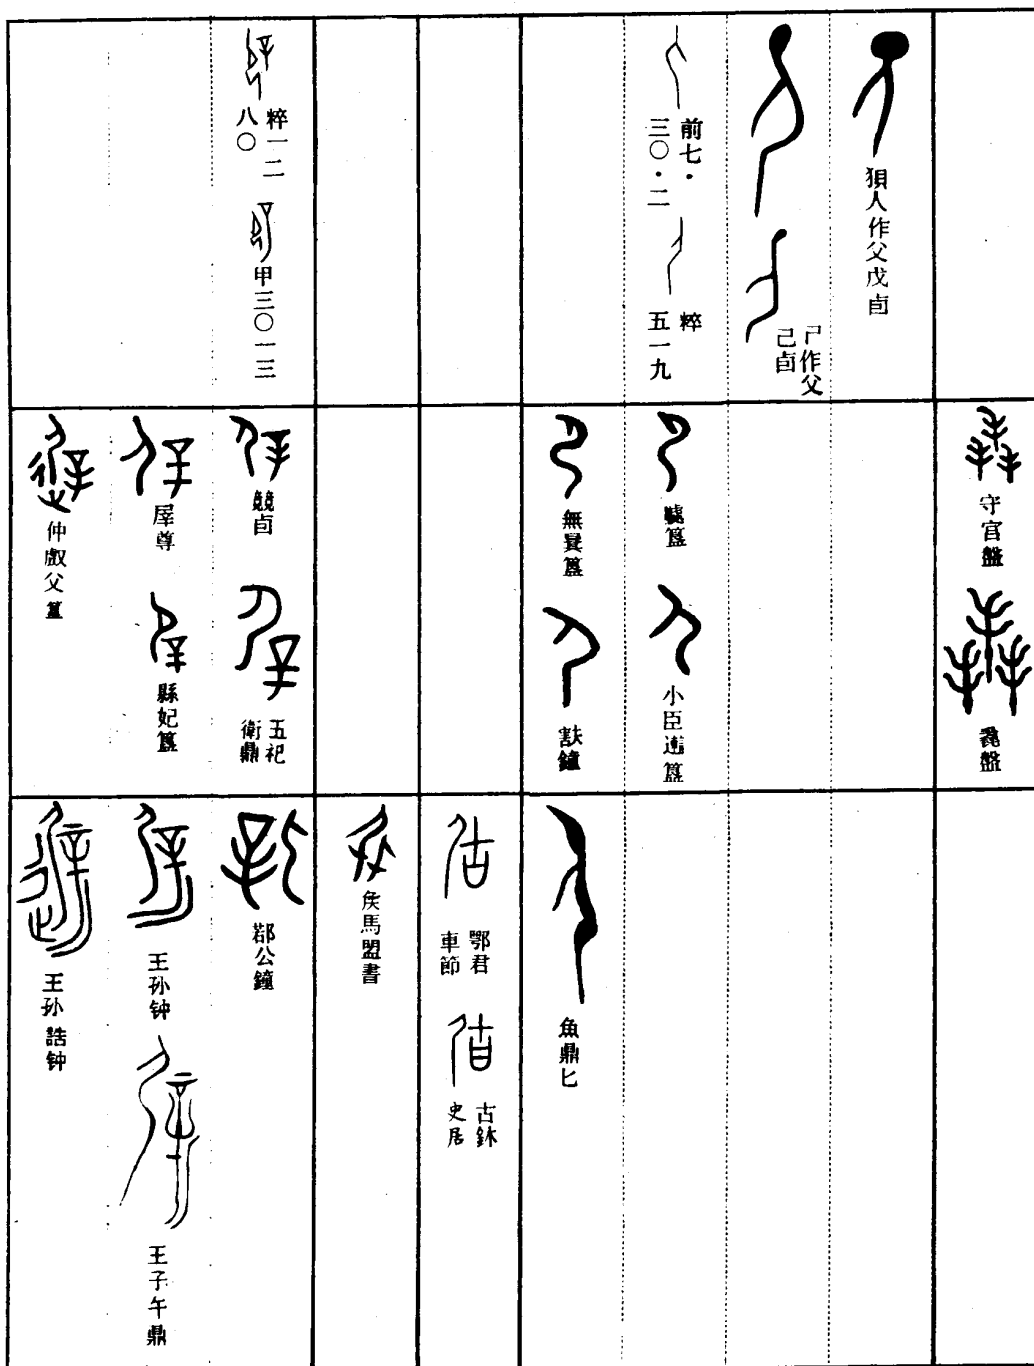 狽人作父戊卣
𠃜作父
己卣
前七·
三〇·二
粹
五一九
粹一二
八〇
甲三〇一三
守宫盤
毳盤
小臣𬨎簋
無㠱簋
㝬鐘
競卣
五祀
衛鼎
屖尊
縣妃簋
仲𠭯父簋
魚鼎匕
鄂君
車節
古鉨
史居
侯馬盟書
鄀公鐘
王孙钟
王子午鼎
王孙誥钟